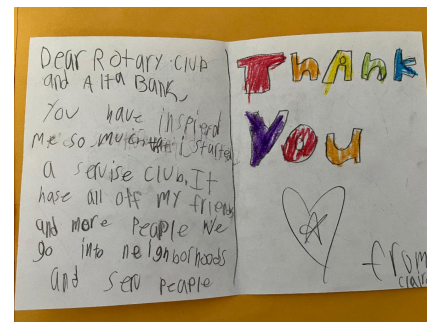 Dear Rotary Club
and Alta Bank,
You have inspierd
me so much that I started
a servise club. It
hase all off my friends
and more peaple we
go into neighborhoods
and serv peaple
Thank
You
from
claire